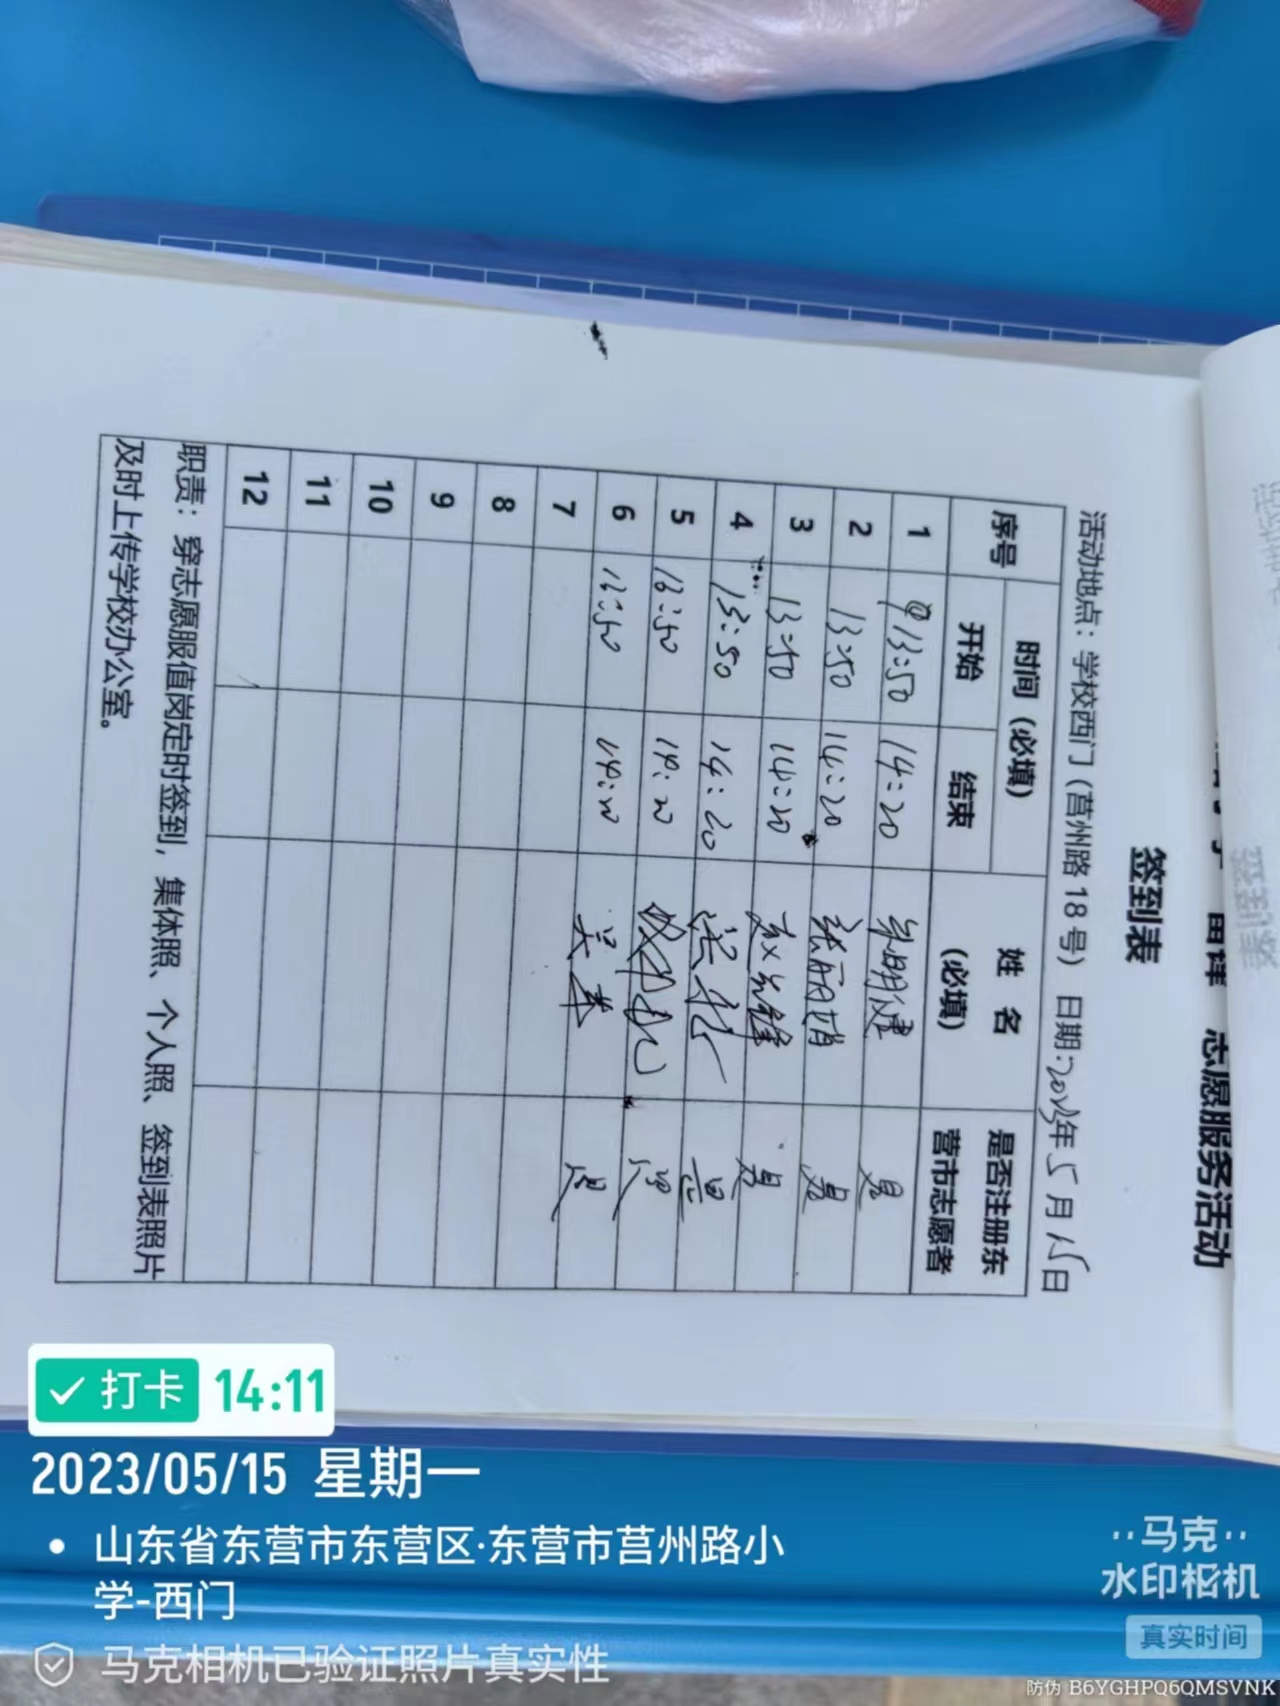 志愿服务活动
签到表
活动地点：学校西门（莒州路18号） 日期:2023年5月15日
序号 时间（必填） 姓 名（必填） 是否注册东营市志愿者
开始 结束
1 13:50 14:20 是
2 13:50 14:20 张丽娟 是
3 13:50 14:20 赵 是
4 13:50 14:20 是
5 13:50 14:20 是
6 13:50 14:20 吴 是
7
8
9
10
11
12
职责：穿志愿服值岗定时签到，集体照、个人照、签到表照片
及时上传学校办公室。
打卡 14:11
2023/05/15 星期一
山东省东营市东营区·东营市莒州路小
学-西门
马克相机已验证照片真实性
马克
水印相机
真实时间
防伪 B6YGHPQ6QMSVNK